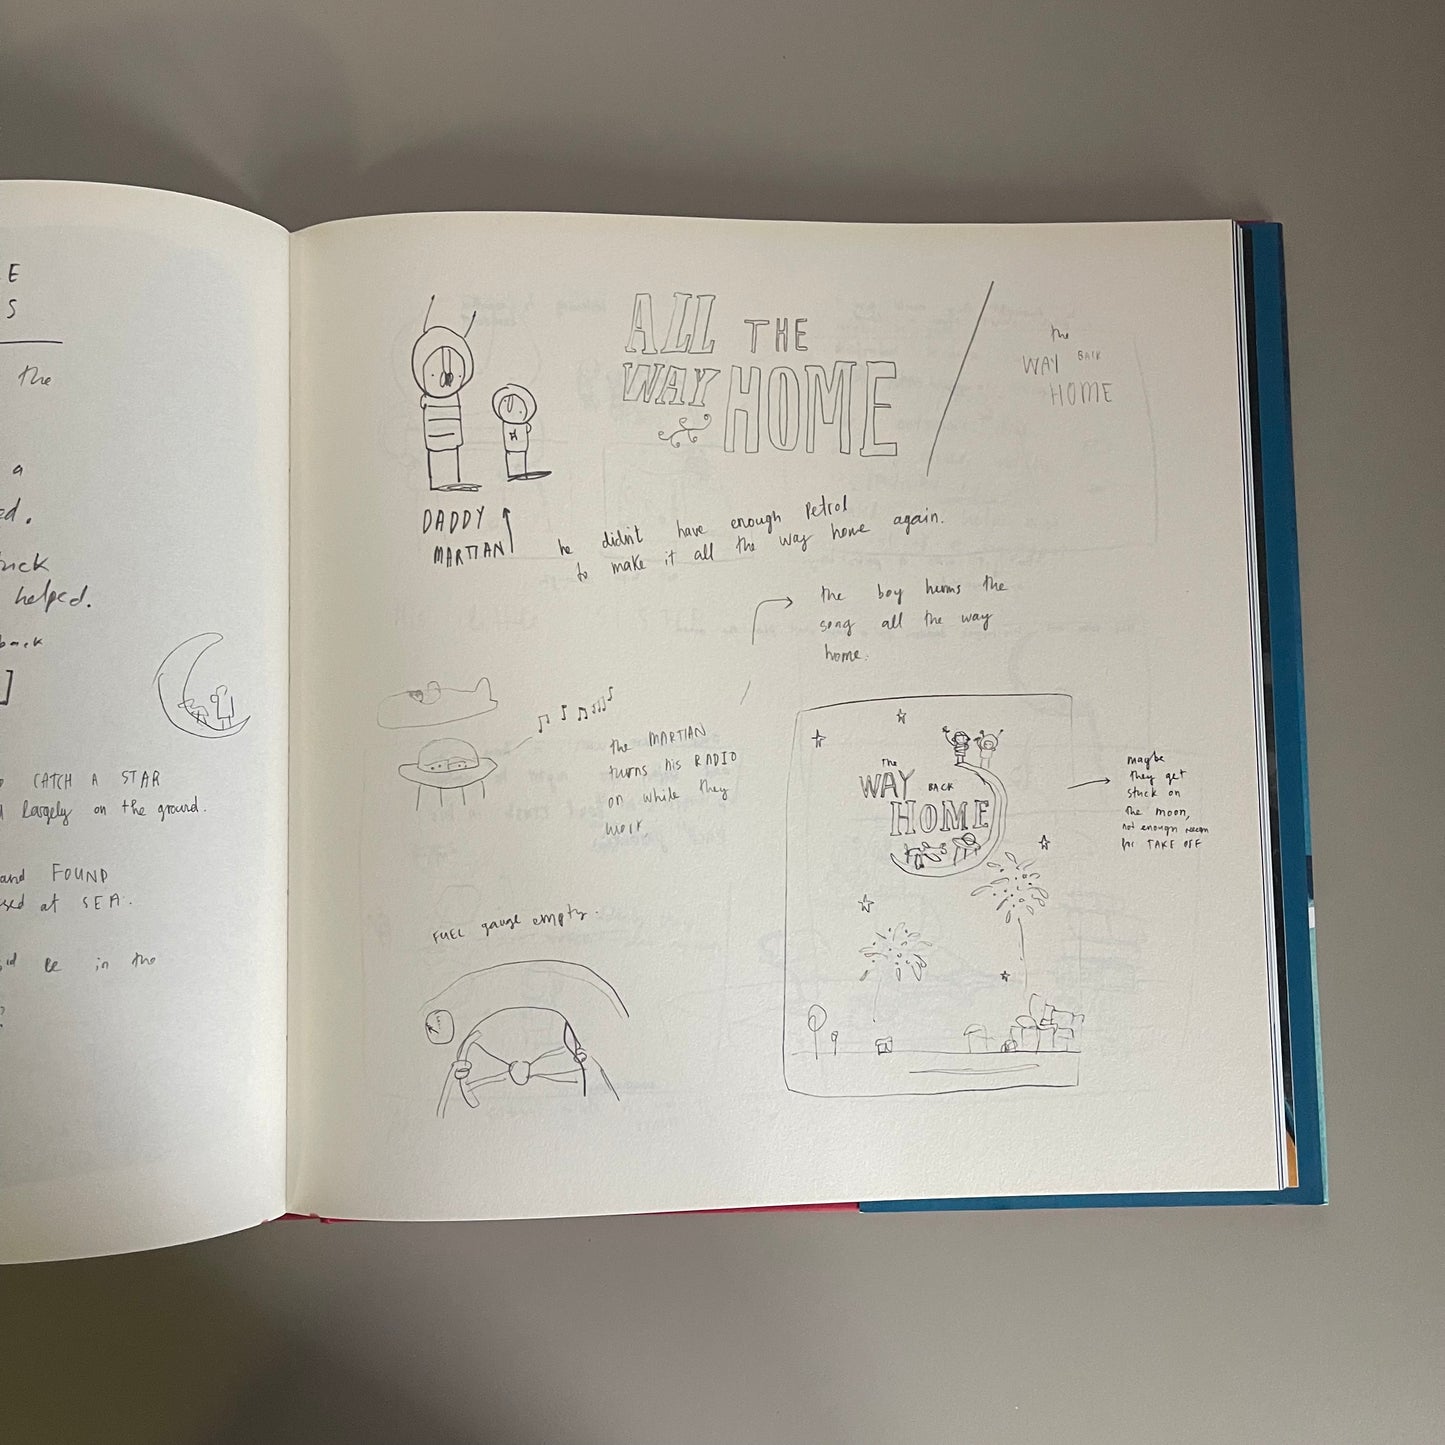 E
S
the
a
ed.
helped.
back
]
CATCH A STAR
largely on the ground.
and FOUND
at SEA.
be in the
?
ALL THE
WAY HOME
the
WAY BACK
HOME
DADDY
MARTIAN
he didn't have enough petrol
to make it all the way home again.
the boy hums the
song all the way
home.
the MARTIAN
turns his RADIO
on while they
work
FUEL gauge empty.
The
WAY BACK
HOME
maybe
they get
stuck on
the moon,
not enough
for TAKE OFF